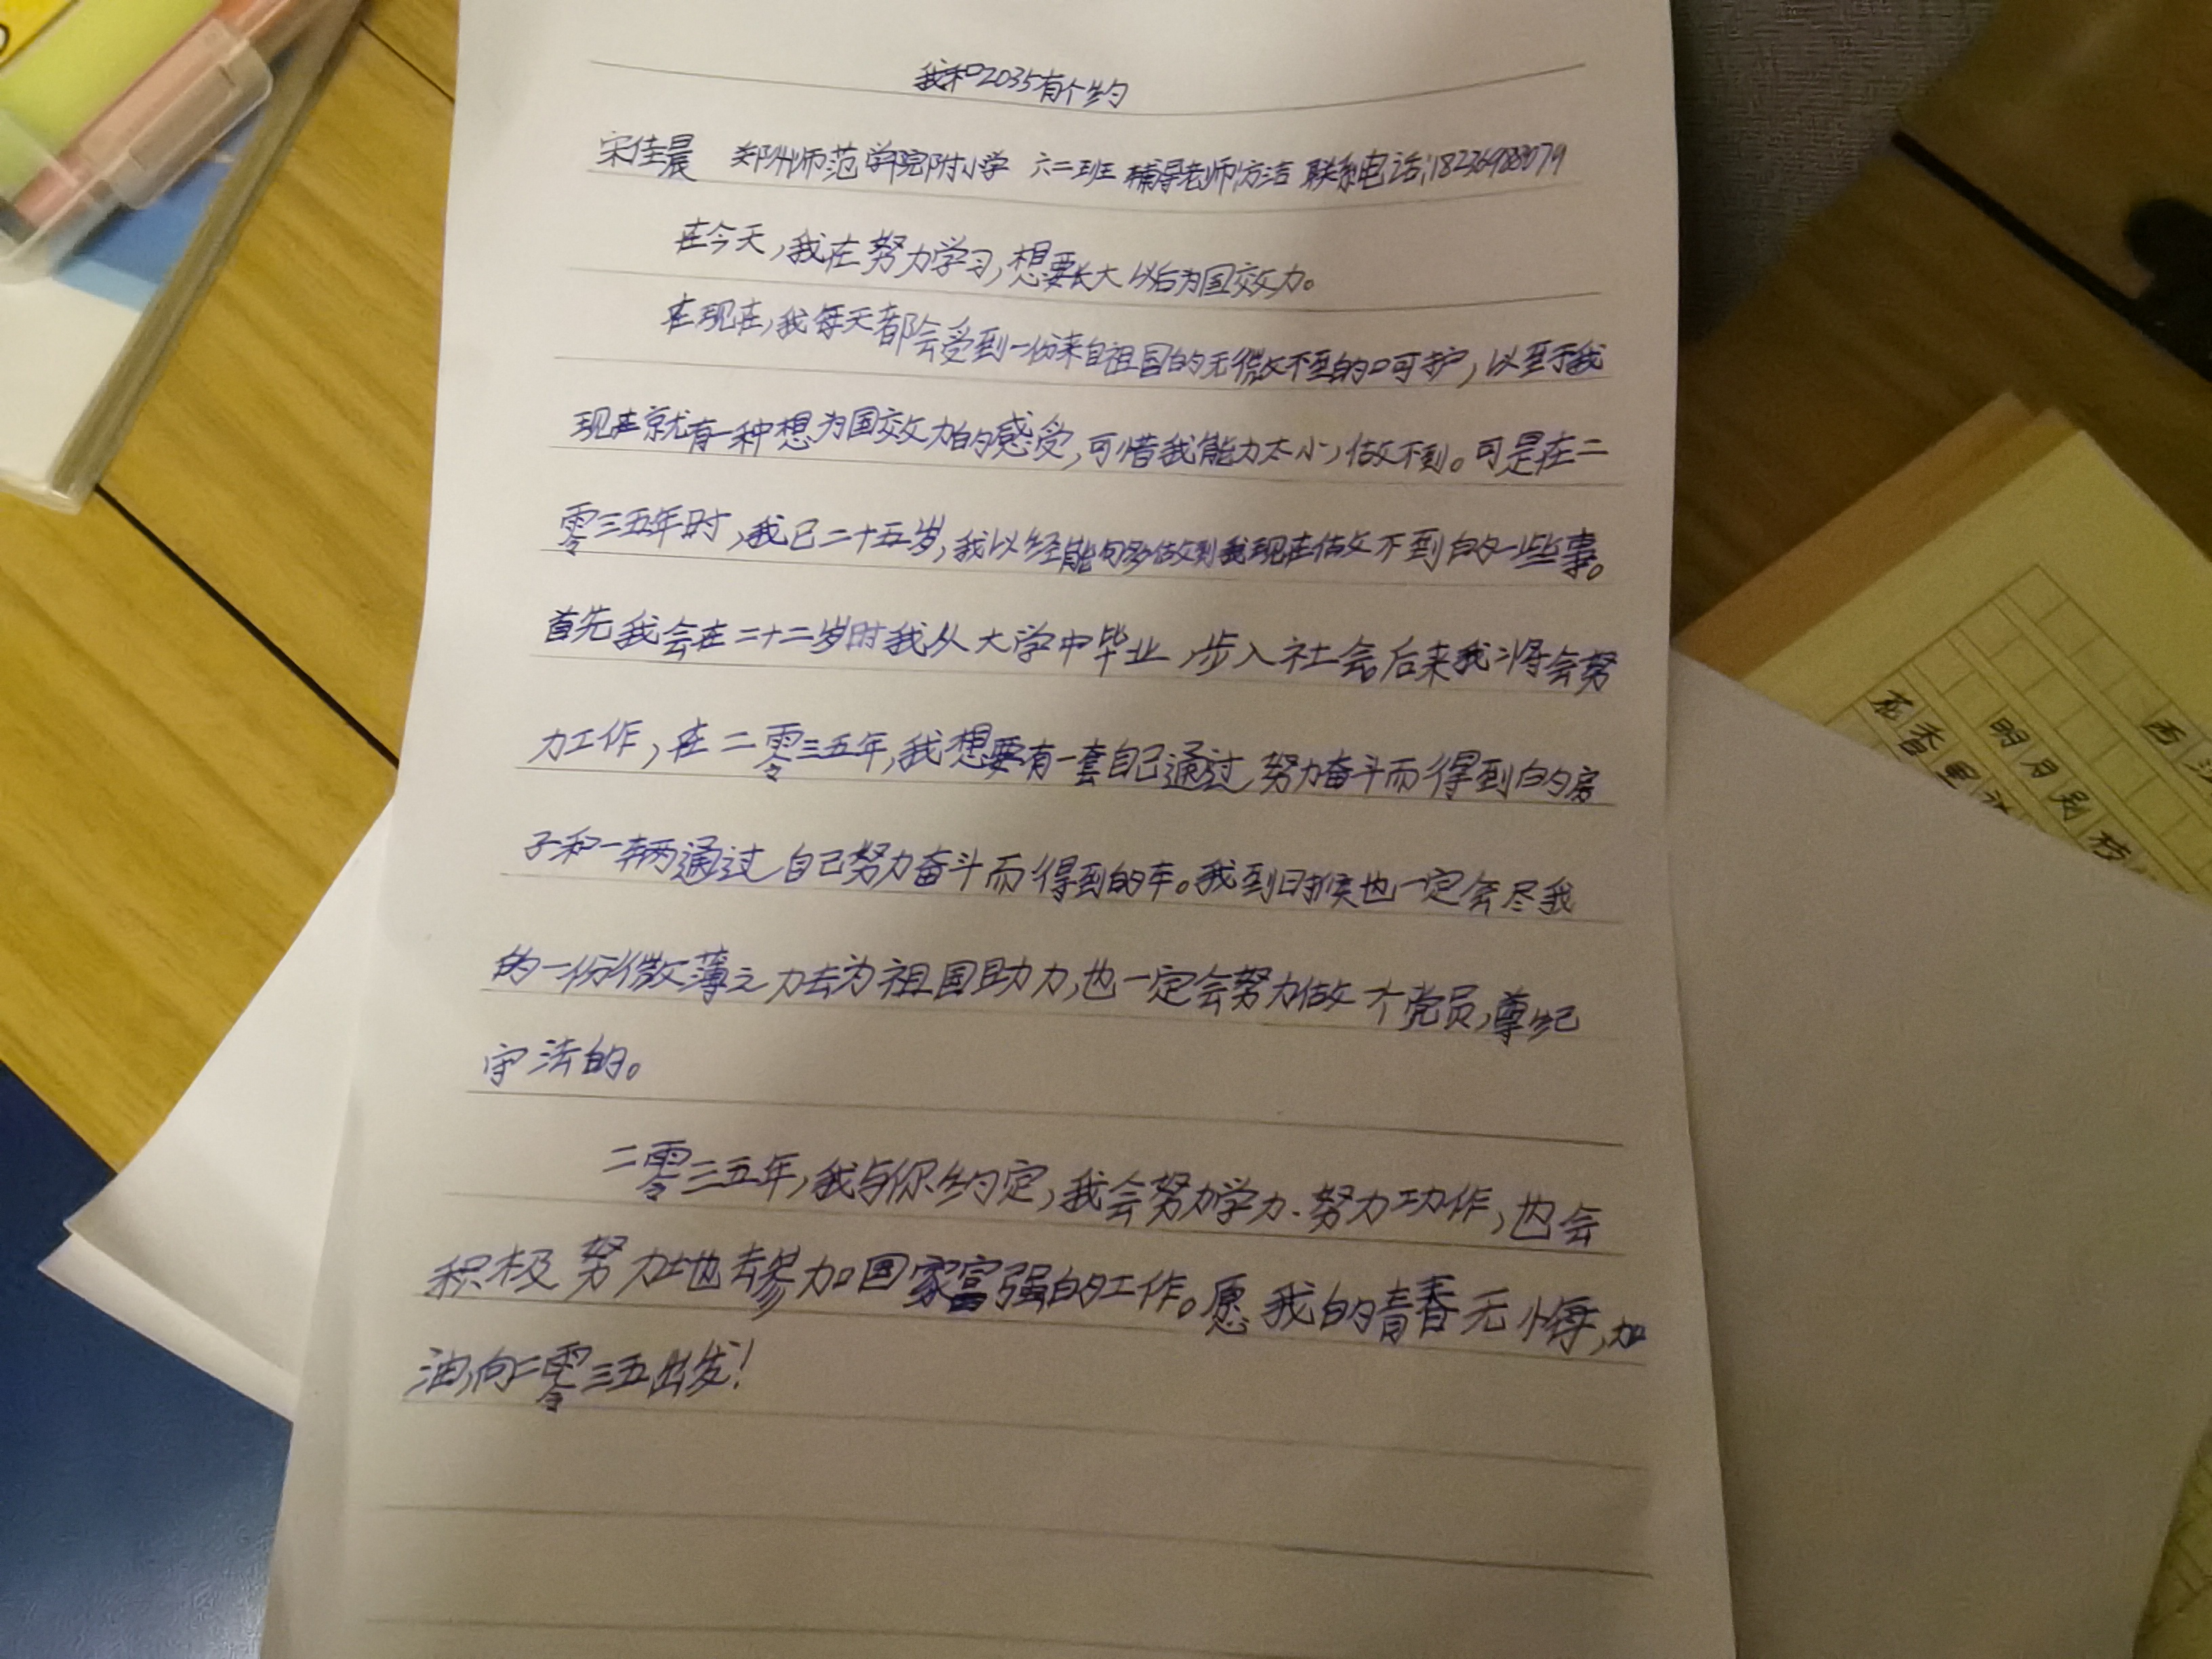 我和2035有个约
宋佳晨 郑州师范学院附小学 六二班 辅导老师:方洁 联系电话:18236988079
在今天,我在努力学习,想要长大以后为国效力。
在现在,我每天都会受到一份来自祖国的无微不至的呵护,以至于我
现在就有一种想为国效力的感受,可惜我能力太小,做不到。可是在二
零三五年时,我已二十五岁,我以经能够做到我现在做不到的一些事。
首先我会在二十二岁时我从大学中毕业,步入社会。后来我将会努
力工作,在二零三五年,我想要有一套自己通过努力奋斗而得到的房
子和一辆通过自己努力奋斗而得到的车。我到时候也一定会尽我
的一份微薄之力去为祖国助力,也一定会努力做个党员,尊纪
守法的。
二零三五年,我与你约定,我会努力学力、努力功作,也会
积极努力地去参加国家富强的工作。愿我的青春无悔,加
油,向二零三五出发!
西
明月别枝
花香里